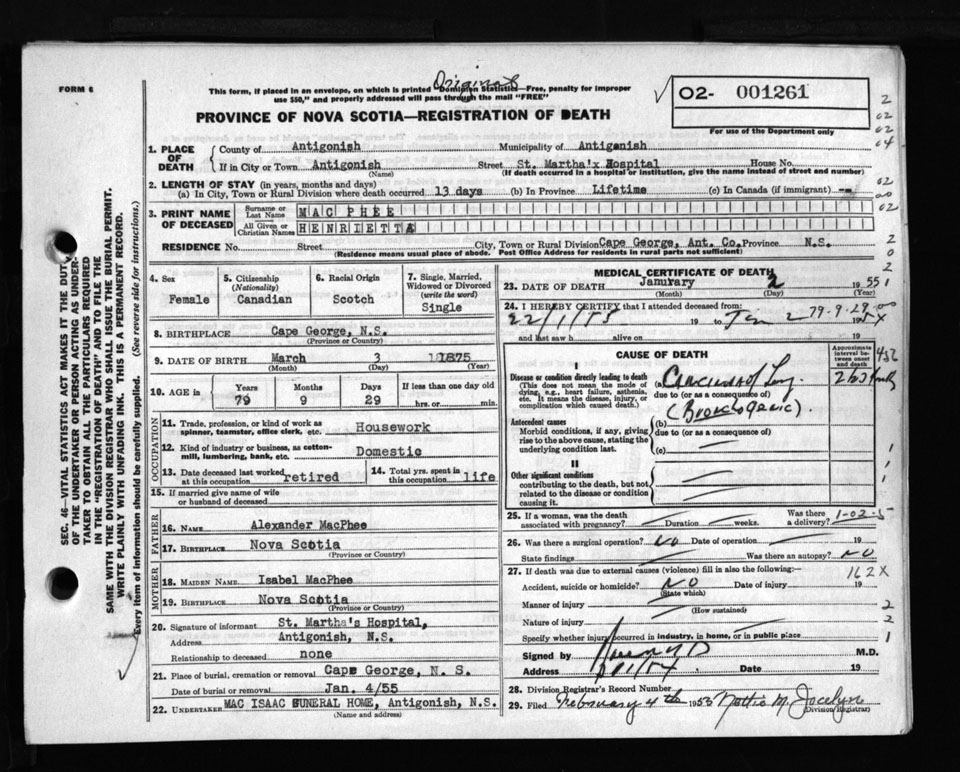 Original
FORM 6
This form, if placed in an envelope, on which is printed "Dominion Statistics—Free, penalty for improper
use $50," and properly addressed will pass through the mail "FREE"
PROVINCE OF NOVA SCOTIA—REGISTRATION OF DEATH
02- 001261
For use of the Department only
1. PLACE OF DEATH
County of Antigonish Municipality of Antigonish
If in City or Town Antigonish Street St. Martha'x Hospital House No.
(Name) (If death occurred in a hospital or institution, give the name instead of street and number)
2. LENGTH OF STAY (in years, months and days)
(a) In City, Town or Rural Division where death occurred 13 days (b) In Province Lifetime (c) In Canada (if immigrant) --
3. PRINT NAME OF DECEASED
Surname or Last Name MAC PHEE
All Given or Christian Names HENRIETTA
RESIDENCE No. Street City, Town or Rural Division Cape George, Ant. Co. Province N.S.
(Residence means usual place of abode. Post Office Address for residents in rural parts not sufficient)
4. Sex Female
5. Citizenship (Nationality) Canadian
6. Racial Origin Scotch
7. Single, Married, Widowed or Divorced (write the word) Single
8. BIRTHPLACE Cape George, N.S.
(Province or Country)
9. DATE OF BIRTH March 3 1875
(Month) (Day) (Year)
10. AGE in Years Months Days If less than one day old
79 9 29 hrs. or min.
OCCUPATION
11. Trade, profession, or kind of work as
spinner, teamster, office clerk, etc. Housework
12. Kind of industry or business, as cotton-
mill, lumbering, bank, etc. Domestic
13. Date deceased last worked at this occupation retired
14. Total yrs. spent in this occupation life
15. If married give name of wife
or husband of deceased
FATHER
16. NAME Alexander MacPhee
17. BIRTHPLACE Nova Scotia
(Province or Country)
MOTHER
18. MAIDEN NAME Isabel MacPhee
19. BIRTHPLACE Nova Scotia
(Province or Country)
20. Signature of informant St. Martha's Hospital,
Address Antigonish, N.S.
Relationship to deceased none
21. Place of burial, cremation or removal Cape George, N. S.
Date of burial or removal Jan. 4/55
22. UNDERTAKER MAC ISAAC FUNERAL HOME, Antigonish, N.S.
(Name and address)
MEDICAL CERTIFICATE OF DEATH
23. DATE OF DEATH January 2 1955
(Month) (Day) (Year)
24. I HEREBY CERTIFY that I attended deceased from
22/1/55 19 to Jan 2 79-9-29 19
and last saw h alive on 19
CAUSE OF DEATH
Approximate interval between onset and death
I
Disease or condition directly leading to death
(This does not mean the mode of
dying, e.g., heart failure, asthenia,
etc. It means the disease, injury, or
complication which caused death.)
(a) Carcinoma of Lung
due to (or as a consequence of)
(Bronchogenic).
Antecedent causes
Morbid conditions, if any, giving
rise to the above cause, stating the
underlying condition last.
(b)
due to (or as a consequence of)
(c)
II
Other significant conditions
contributing to the death, but not
related to the disease or condition
causing it.
25. If a woman, was the death associated with pregnancy? Duration weeks. Was there a delivery? 1-02-5
26. Was there a surgical operation? NO Date of operation 19
State findings Was there an autopsy? NO
27. If death was due to external causes (violence) fill in also the following:—
162X
Accident, suicide or homicide? NO Date of injury 19
(State which)
Manner of injury
(How sustained)
Nature of injury
Specify whether injury occurred in industry, in home, or in public place
Signed by M.D.
Address Date 19
28. Division Registrar's Record Number
29. Filed February 4th 1955 Nettie M. Jocelyn
(Division Registrar)
SEC. 46—VITAL STATISTICS ACT MAKES IT THE DUTY
OF THE UNDERTAKER OR PERSON ACTING AS UNDER-
TAKER TO OBTAIN ALL THE PARTICULARS REQUIRED
IN THE "REGISTRATION OF DEATH" AND TO FILE THE
SAME WITH THE DIVISION REGISTRAR WHO SHALL ISSUE THE BURIAL PERMIT.
WRITE PLAINLY WITH UNFADING INK. THIS IS A PERMANENT RECORD.
Every item of information should be carefully supplied. (See reverse side for instructions.)